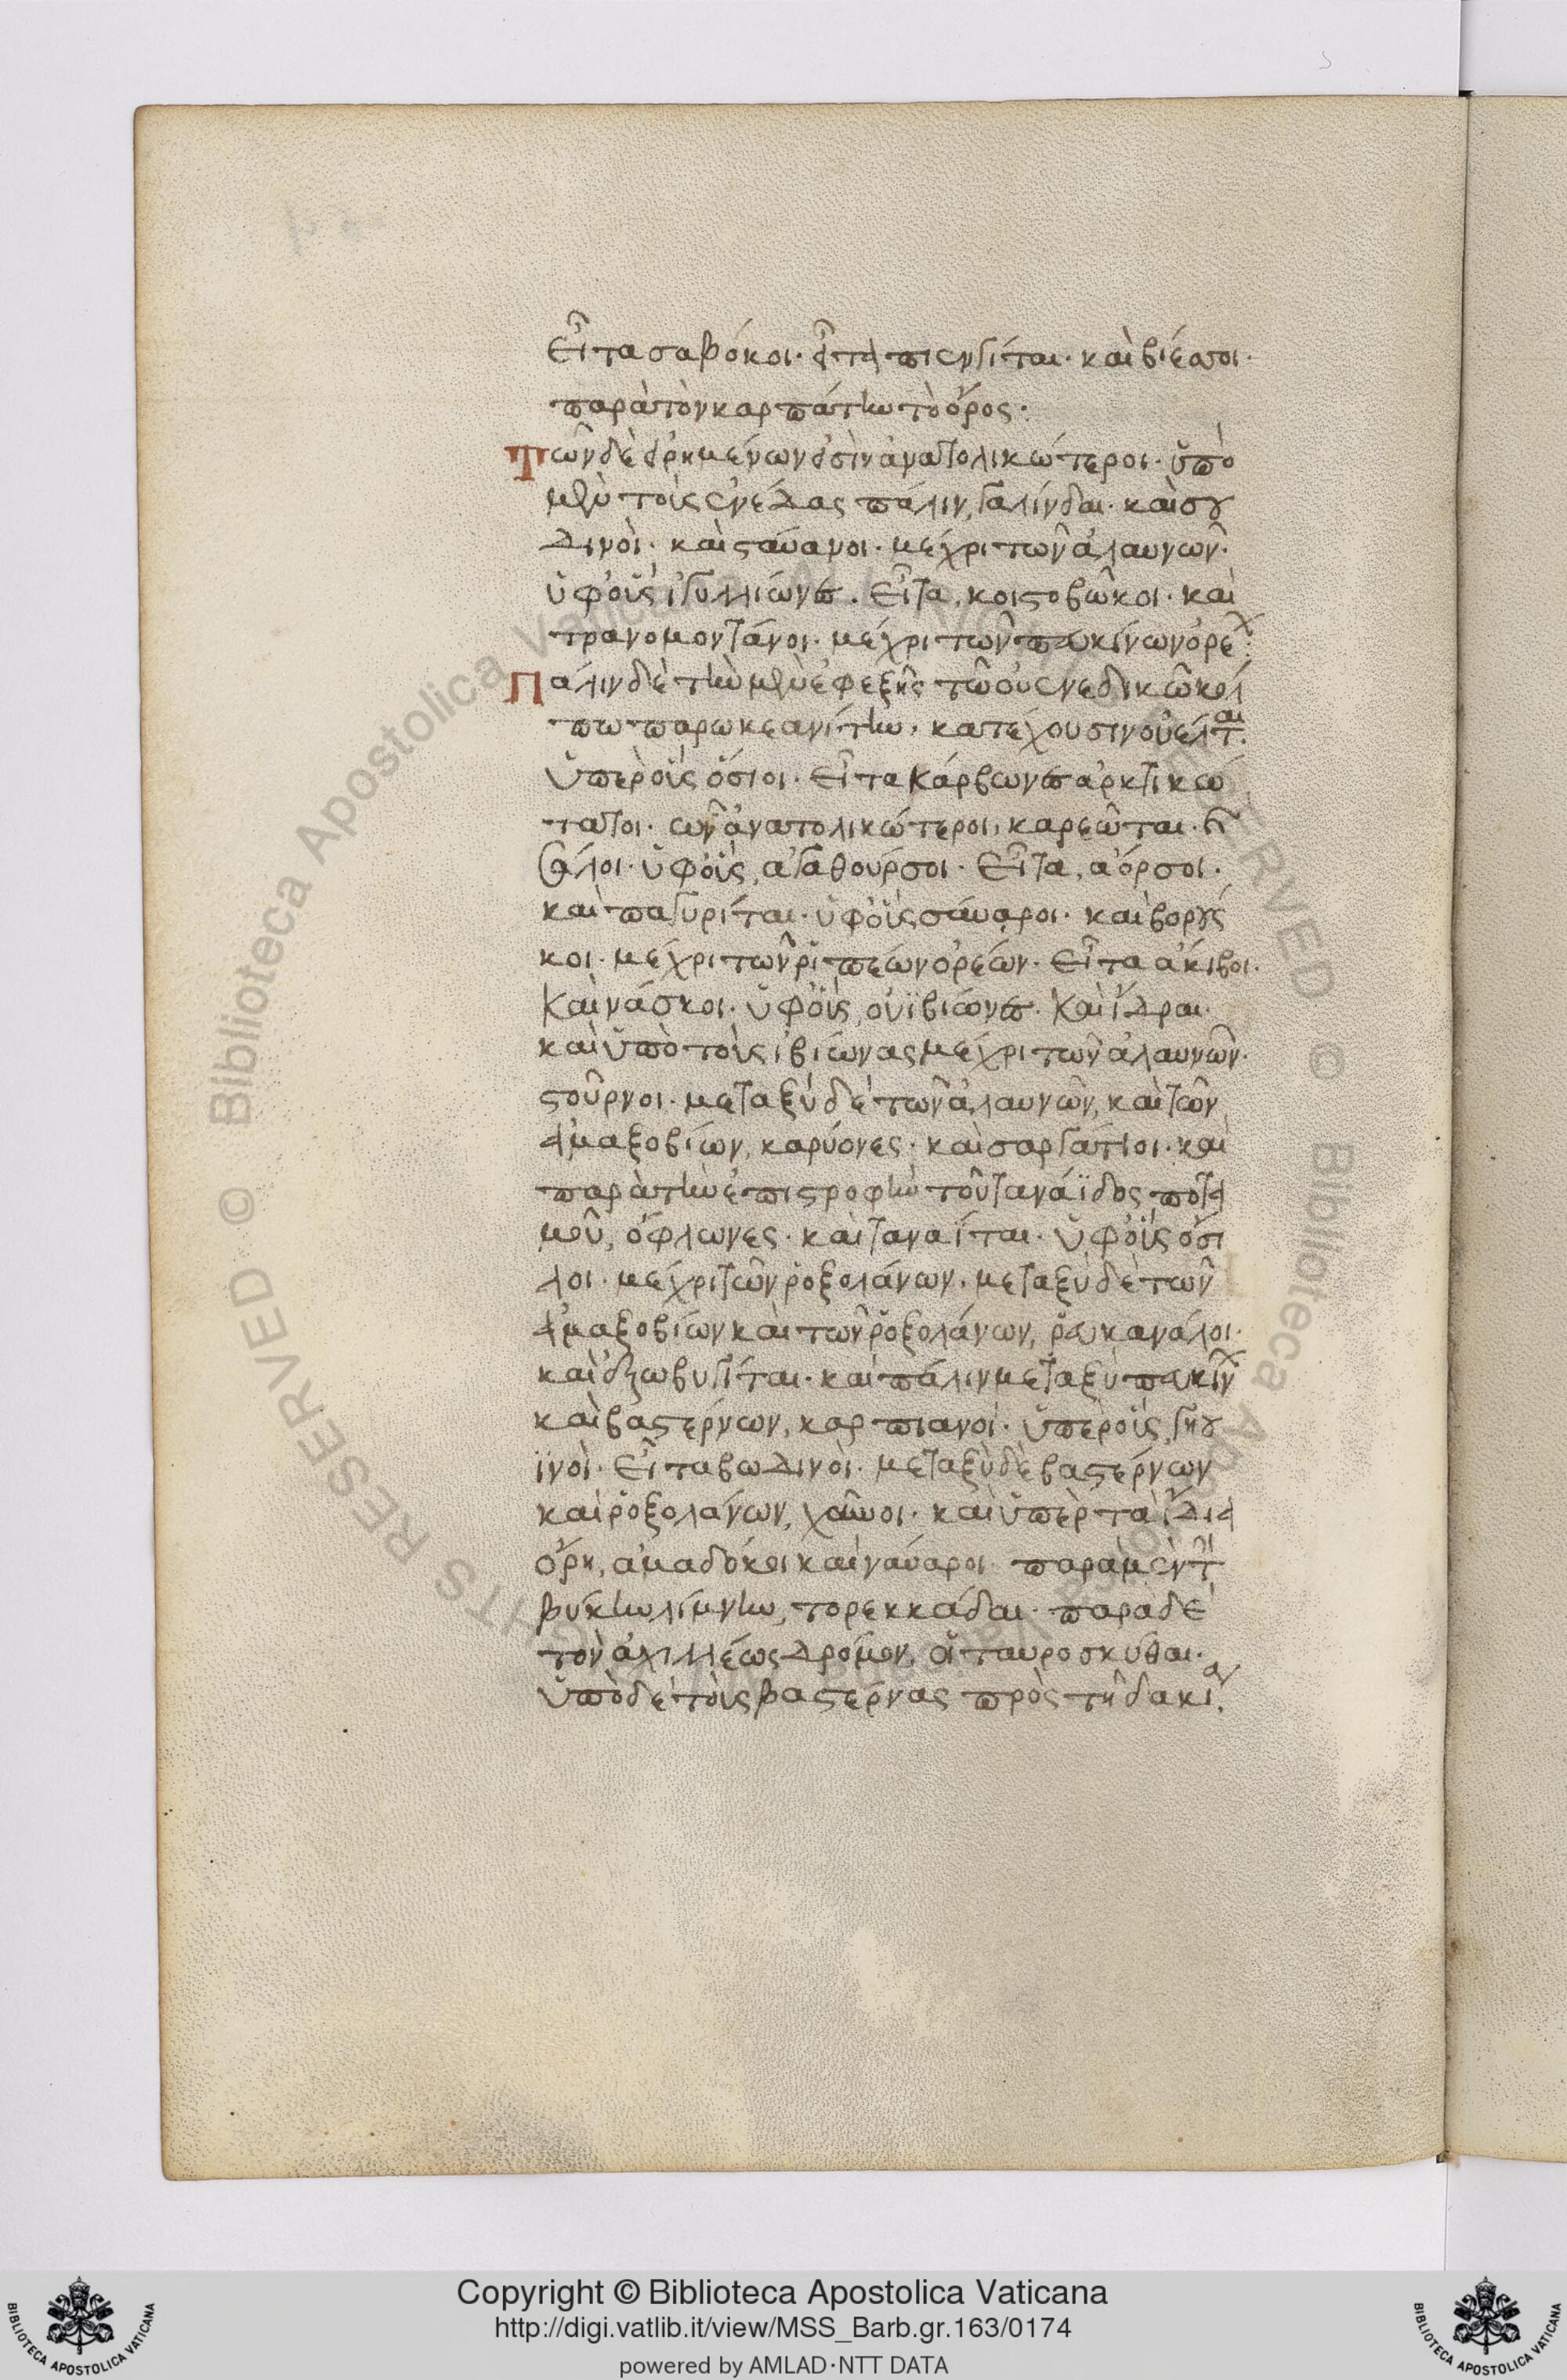 εἶτα σαβόκοι· εἶτα πιενγίται· καὶ βίεσσοι·
παρὰ τὸν καρπάτην τὸ ὄρος·
Τῶν δὲ εἰρημένων εἰσὶν ἀνατολικώτεροι· ὑπὸ
μὲν τοὺς ἐνέδας πάλιν, γαλίνδαι· καὶ σου
δινοὶ· καὶ σταύανοι· μέχρι τῶν ἀλαυνῶν·
ὑφ' οὓς ἰγυλλίωνες· εἶτα, κοιστοβῶκοι· καὶ
τρανομοντάνοι· μέχρι τῶν πευκίνων ὀρέων·
Πάλιν δὲ τὴν μὲν ἐφεξῆς τῶ οὐενεδικῶ κόλ
πω παρωκεανίτην, κατέχουσιν οὐέλται·
ὑπὲρ οὓς ὅσιοι· εἶτα κάρβωνες ἀρκτικώ
τατοι· ὧν ἀνατολικώτεροι, καρεῶται· καὶ
σάλοι· ὑφ' οὓς, ἀγαθουρσοι· εἶτα, ἄορσοι·
καὶ παγυρίται· ὑφ' οὓς σαύαροι· καὶ βορούσ
κοι· μέχρι τῶν ῥιπαίων ὀρέων· εἶτα ἄκιβοι·
καὶ νάσκοι· ὑφ' οὓς, οὐϊβίωνες· καὶ ἴδραι·
καὶ ὑπὸ τοὺς ἰβίωνας μέχρι τῶν ἀλαυνῶν·
στοῦρνοι· μεταξὺ δὲ τῶν ἀλαυνῶν, καὶ τῶν
ἁμαξοβίων, καρύονες· καὶ σαργάτιοι· καὶ
παρὰ τὴν ἐπιστροφὴν τοῦ τανάϊδος ποτα
μοῦ, ὄφλωνες· καὶ ταναΐται· ὑφ' οὓς ὄσι
λοι· μέχρι τῶν ῥοξολάνων· μεταξὺ δὲ τῶν
ἁμαξοβίων καὶ τῶν ῥοξολάνων, ῥευκανάλοι·
καὶ ἐξωβυγίται· καὶ πάλιν μεταξὺ πευκίνων
καὶ βαστέρνων, καρπιανοί· ὑπὲρ οὓς, γηου
ϊνοὶ· εἶτα βωδινοὶ· μεταξὺ δὲ βαστέρνων
καὶ ῥοξολάνων, χαῖνοι· καὶ ὑπὲρ τὰ ἴδια
ὄρη, ἀμαδόκοι καὶ ναύαροι· παρὰ μὲν τὴν
βύκην λίμνην, τορεκκάδαι· παρὰ δὲ
τὸν ἀχιλλέως δρόμον, οἱ ταυροσκύθαι·
ὑπὸ δὲ τοὺς βαστέρνας πρὸς τῆ δακία,
Copyright © Biblioteca Apostolica Vaticana
http://digi.vatlib.it/view/MSS_Barb.gr.163/0174
powered by AMLAD·NTT DATA